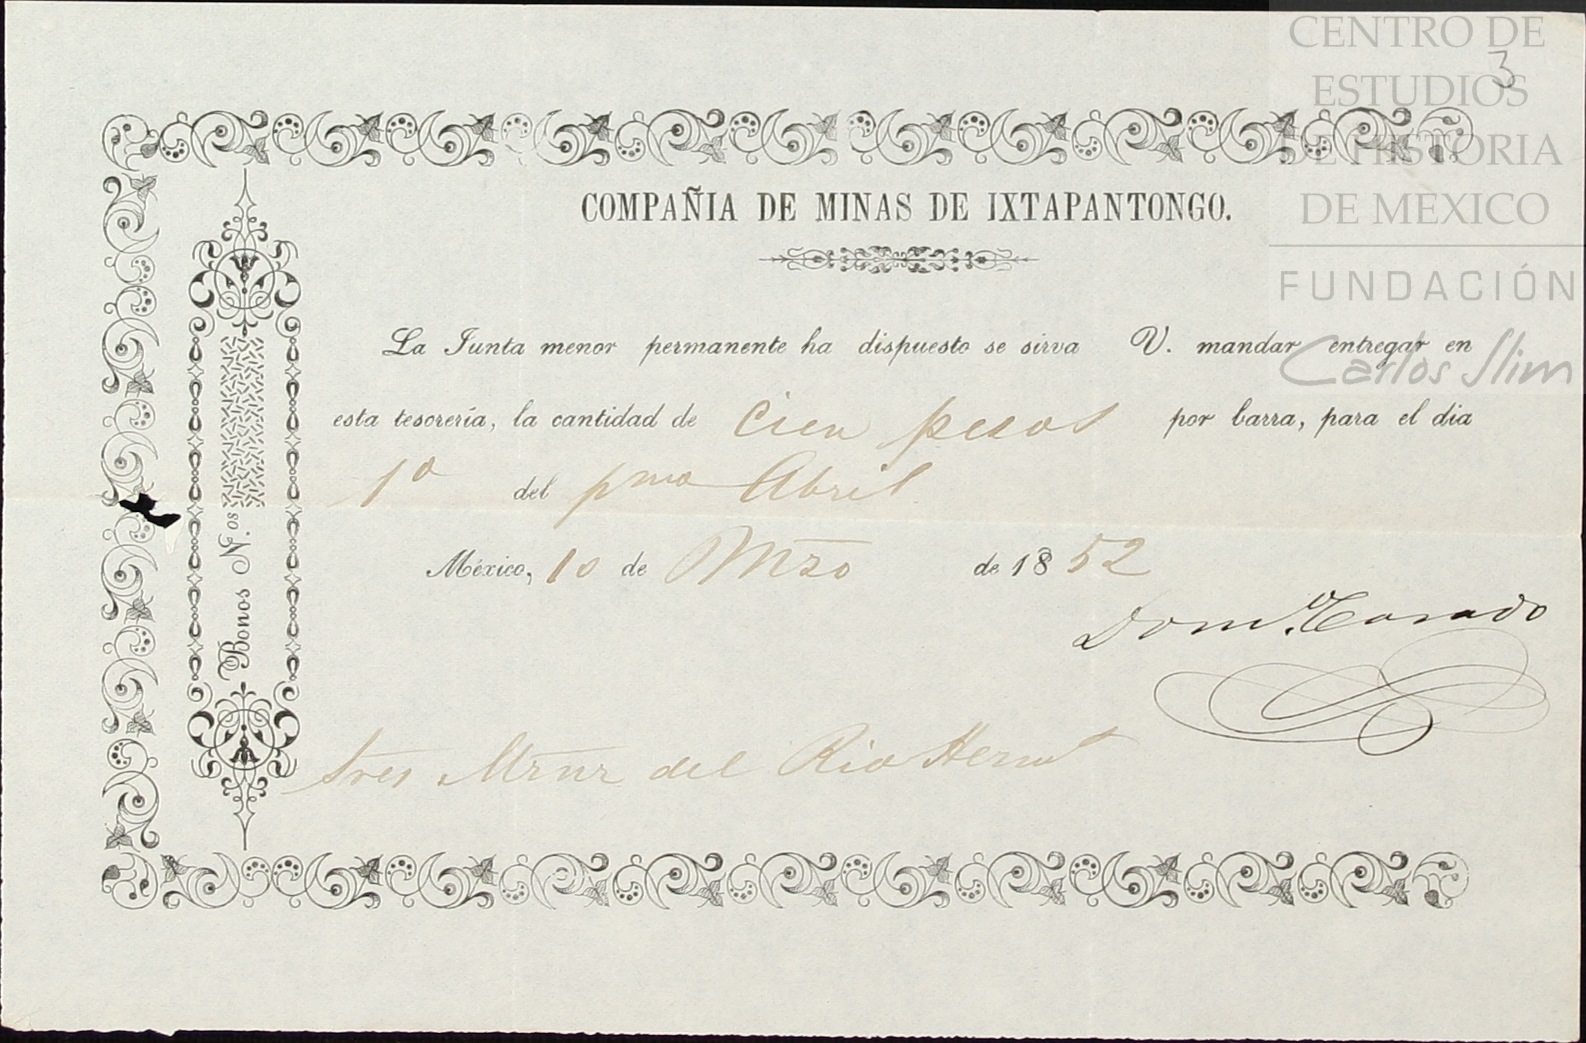 CENTRO DE
ESTUDIOS
DE HISTORIA
DE MEXICO
FUNDACIÓN
Carlos Slim
3
COMPAÑIA DE MINAS DE IXTAPANTONGO.
La Junta menor permanente ha dispuesto se sirva V. mandar entregar en
esta tesorería, la cantidad de Cien pesos por barra, para el dia
1º del pmo Abril
México, 10 de Mzo de 1852
Bonos N.os
del Rio